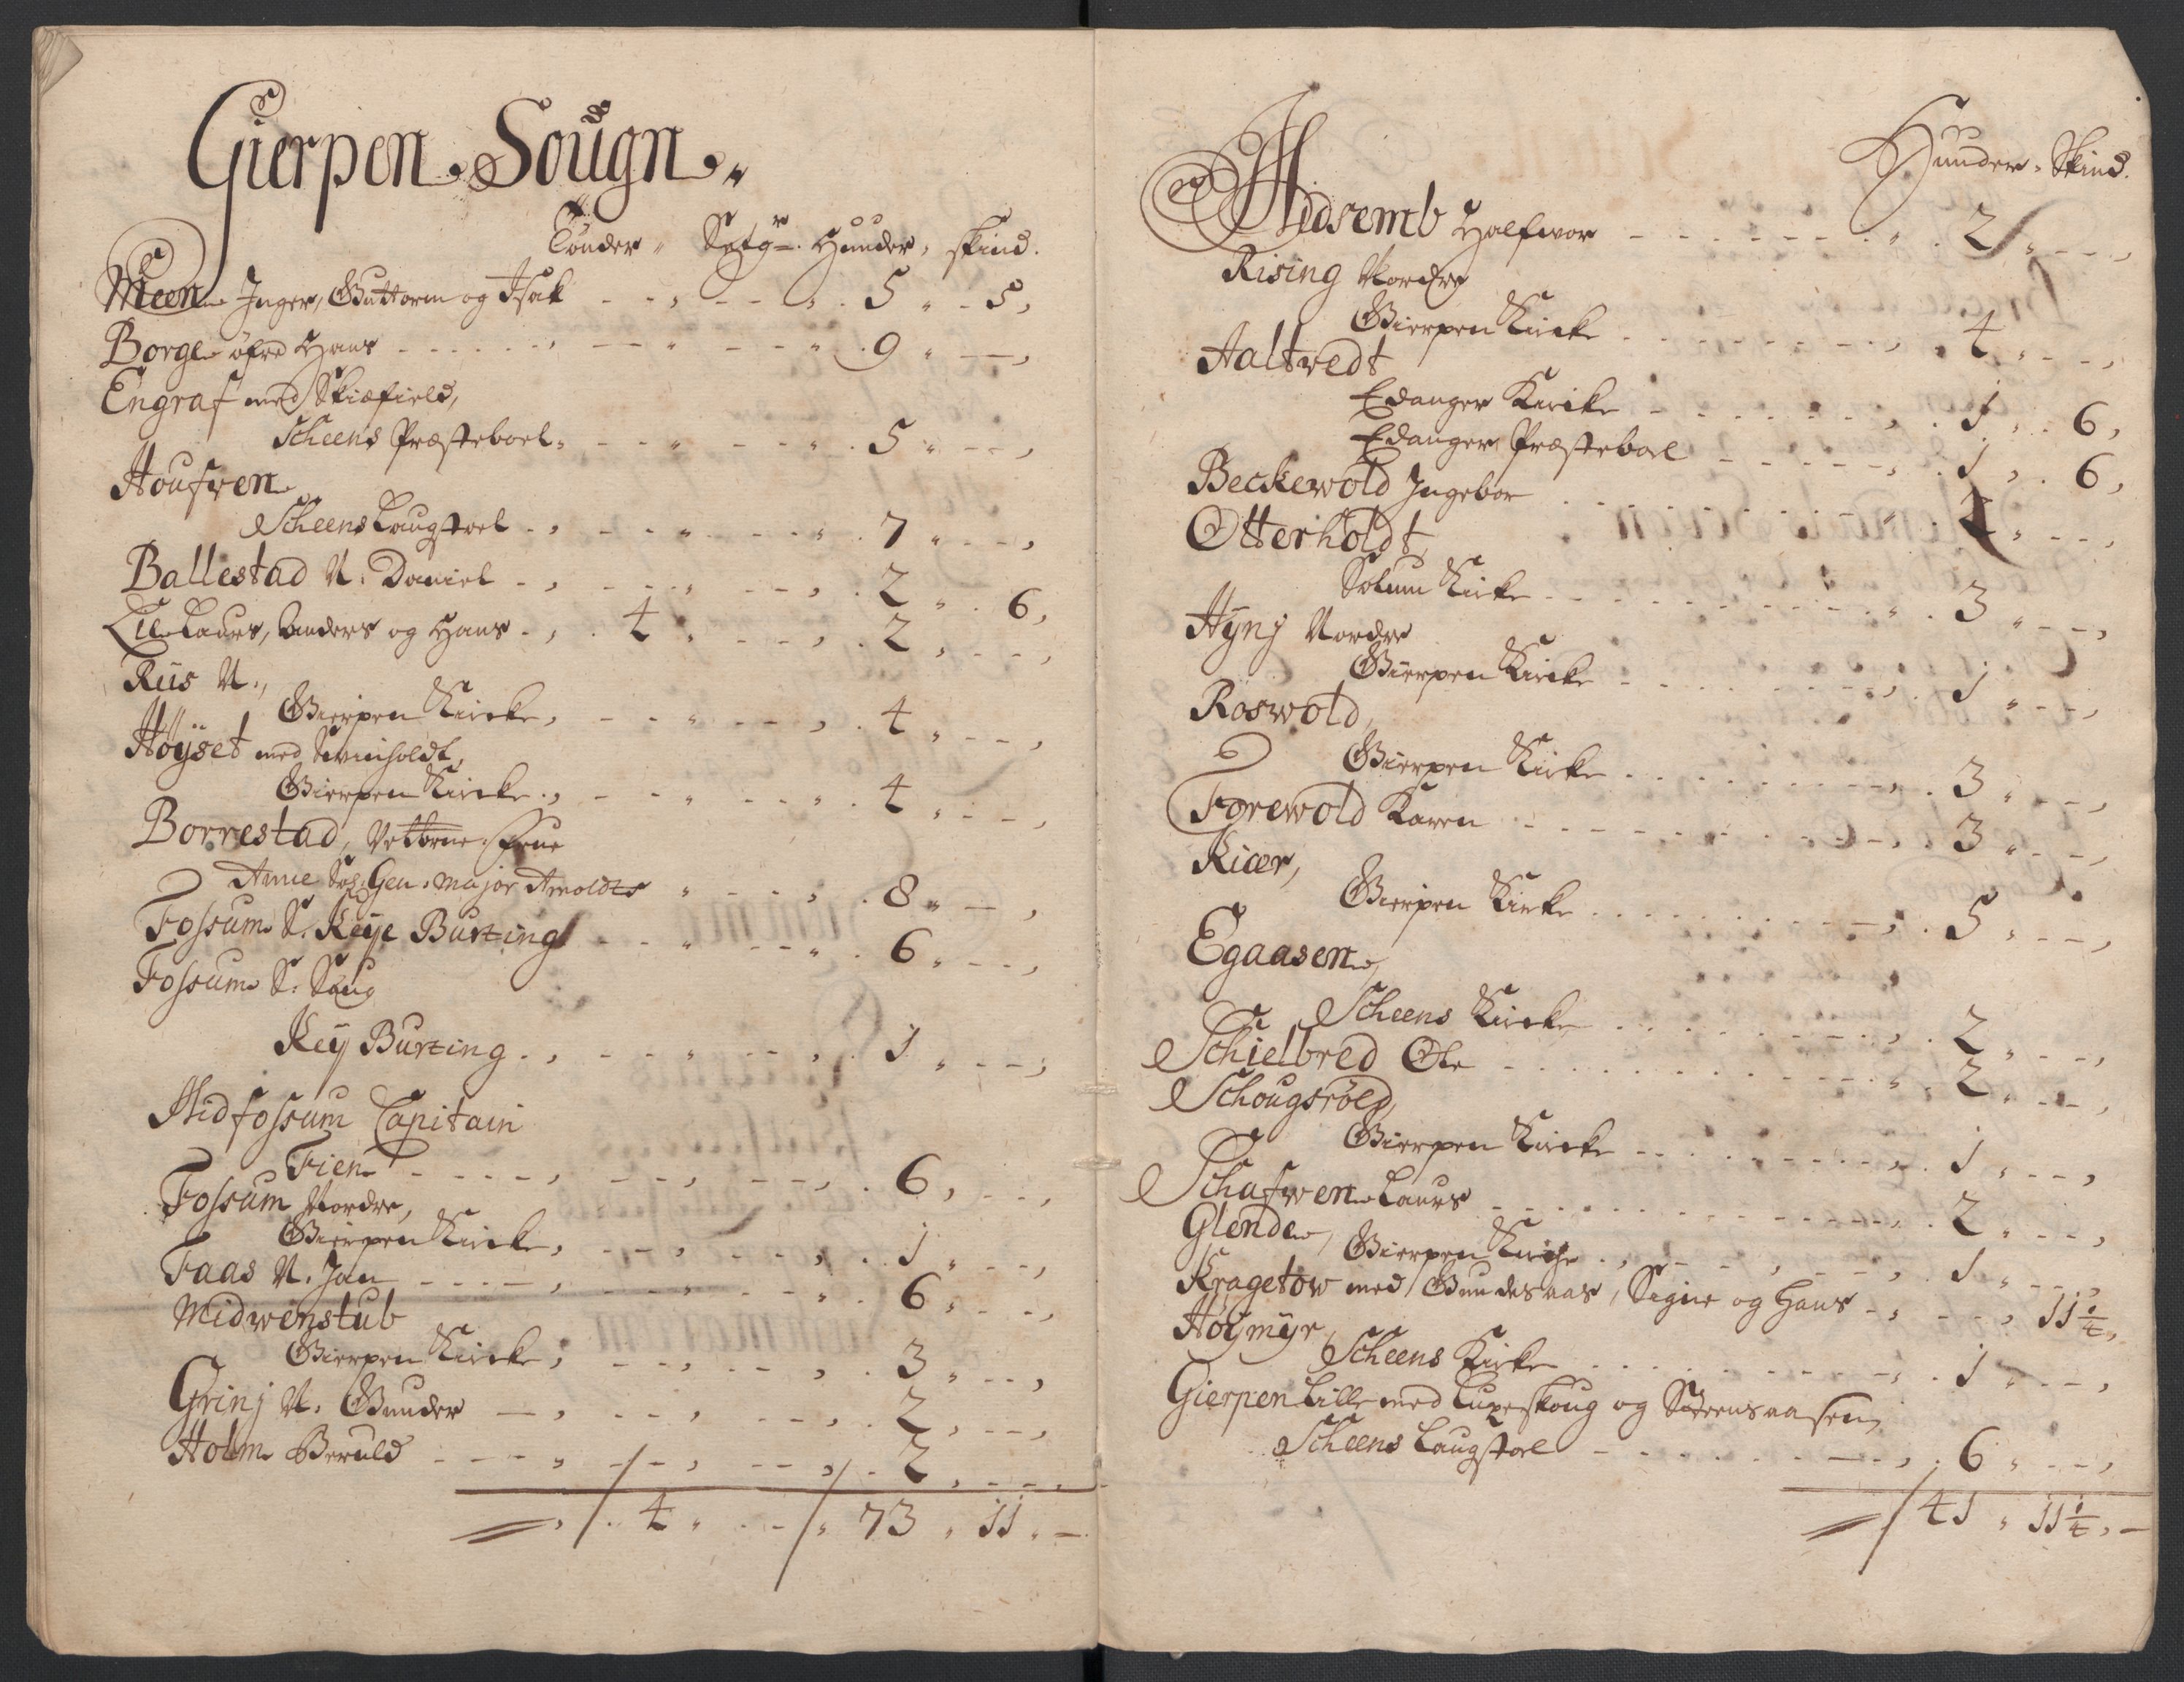 Gierpen Sougn
Tönder Setg. Huuder, skind.
Meen Inger, Guttorm og Isak - - - 5 - 5,
Borge öfre Hans - - - 9 - -
Engraf med Skiæfield,
Scheens Præsteboel - - - 5 - -
Houfven
Scheens Laugstoel - - - 7 - -
Ballestad N. Daniel - - - 2 - 6,
Lie Laurs, Anders og Hans - 4 - - 2 - -
Riis N.,
Gierpen Kircke, - - - 4 - -
Höyset med Svinholdt,
Gierpen Kircke, - - - 4 - -
Borrestad, Vettorne Frue
Anne Sal. Gen. Major Arnoldts - - 8 - -
Fossum S. Keye Burting - - - 6 - -
Fossum S. Saug
Key Burting - - - 1 - -
Midfossum Capitain
Fien - - - 6 - -
Fossum Nordre,
Gierpen Kircke, - - - 1 - -
Faas N. Jan - - - 6 - -
Midwenstub
Gierpen Kircke, - - - 3 - -
Grinj N. Gunder - - - 2 - -
Holm Beruld - - - 2 - -
4 - - 73 - 11 -
Huuder - Skind.
Aasemb Halfwor - - - 2 - -
Rising Nordre
Gierpen Kircke - - - 4 - -
Aaltvedt
Edanger Kircke - - - 1 - 6,
Edanger Præsteboel - - - 1 - 6,
Beckewold Ingebor - - - 2 - -
Otterholdt,
Solum Kircke - - - 3 - -
Hynj Nordre
Gierpen Kircke - - - 1 - -
Roswold,
Gierpen Kircke - - - 3 - -
Forewold Karen - - - 3 - -
Kiær,
Gierpen Kircke - - - 5 - -
Egaasen,
Scheens Kircke - - - 2 - -
Schielbred Ole - - - 2 - -
Schougsröed,
Gierpen Kircke - - - 1 - -
Schafwen Laurs - - - 2 - -
Glende, Gierpen Kirche - - - 1 - -
Kragetow med Gundesaas, Signe og Hans - - - 11 1/4
Höymyr,
Scheens Kircke - - - 1 - -
Gierpen Lille med Luxeskoug og Steensaasen,
Scheens Laugstoel - - - 6 - -
41 - 11 1/4 -